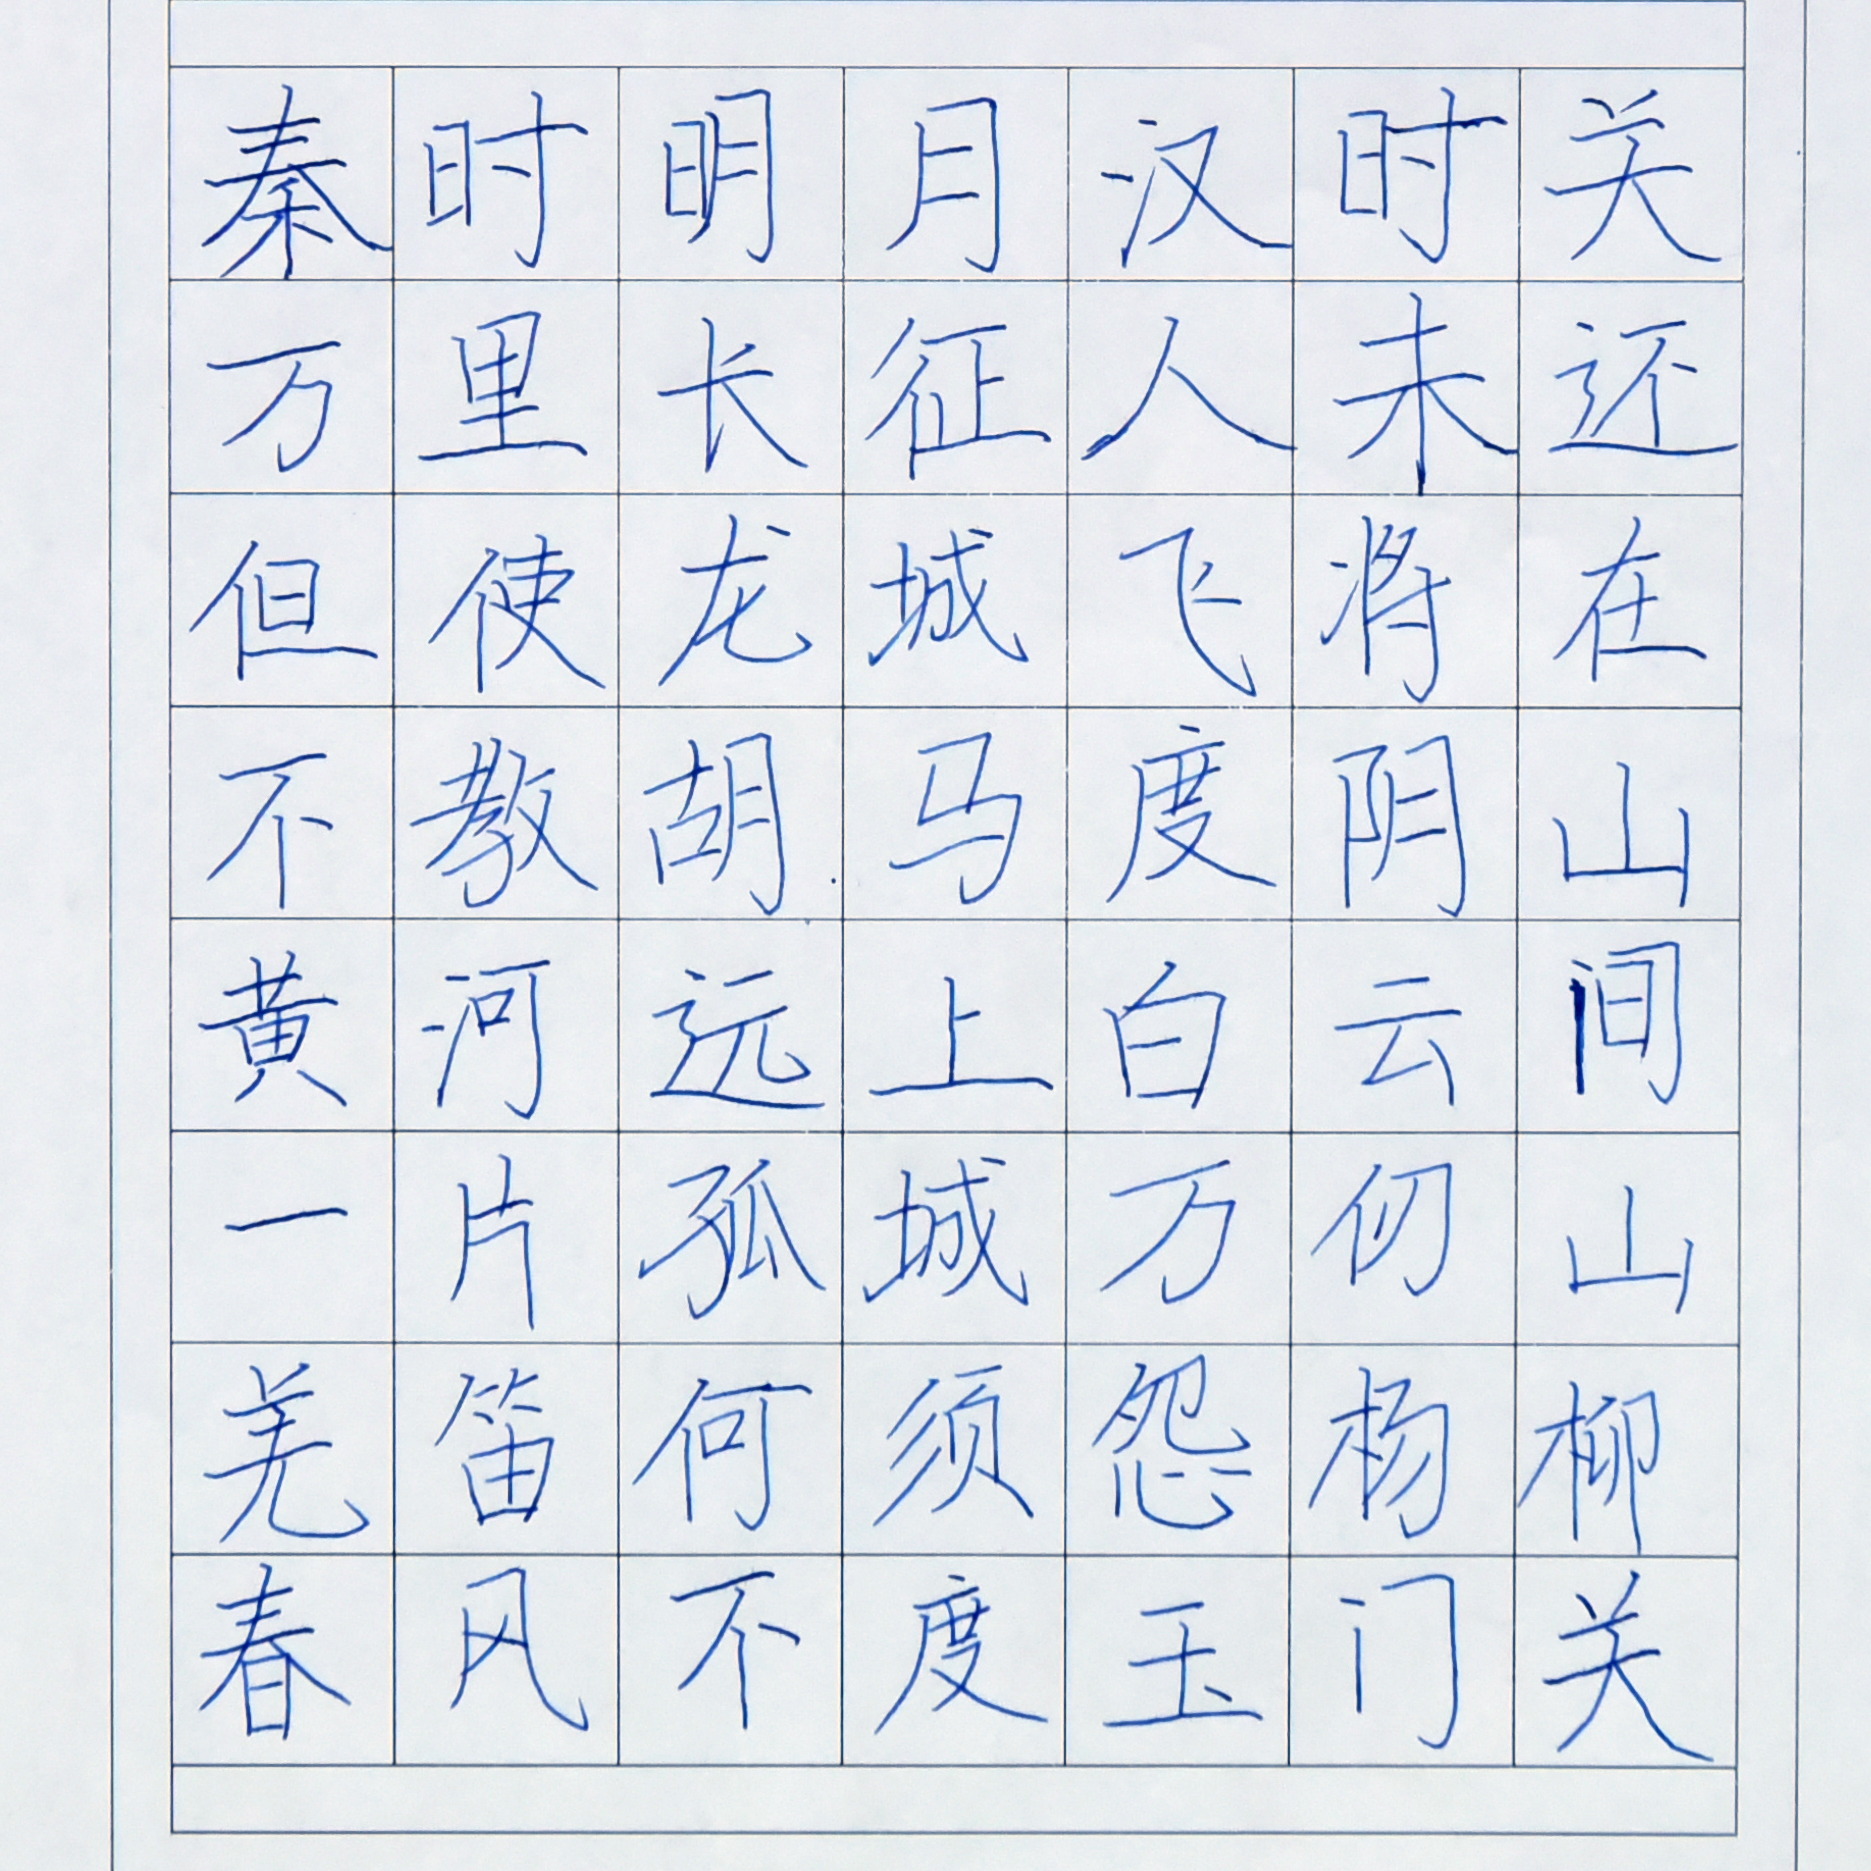 秦时明月汉时关
万里长征人未还
但使龙城飞将在
不教胡马度阴山
黄河远上白云间
一片孤城万仞山
羌笛何须怨杨柳
春风不度玉门关